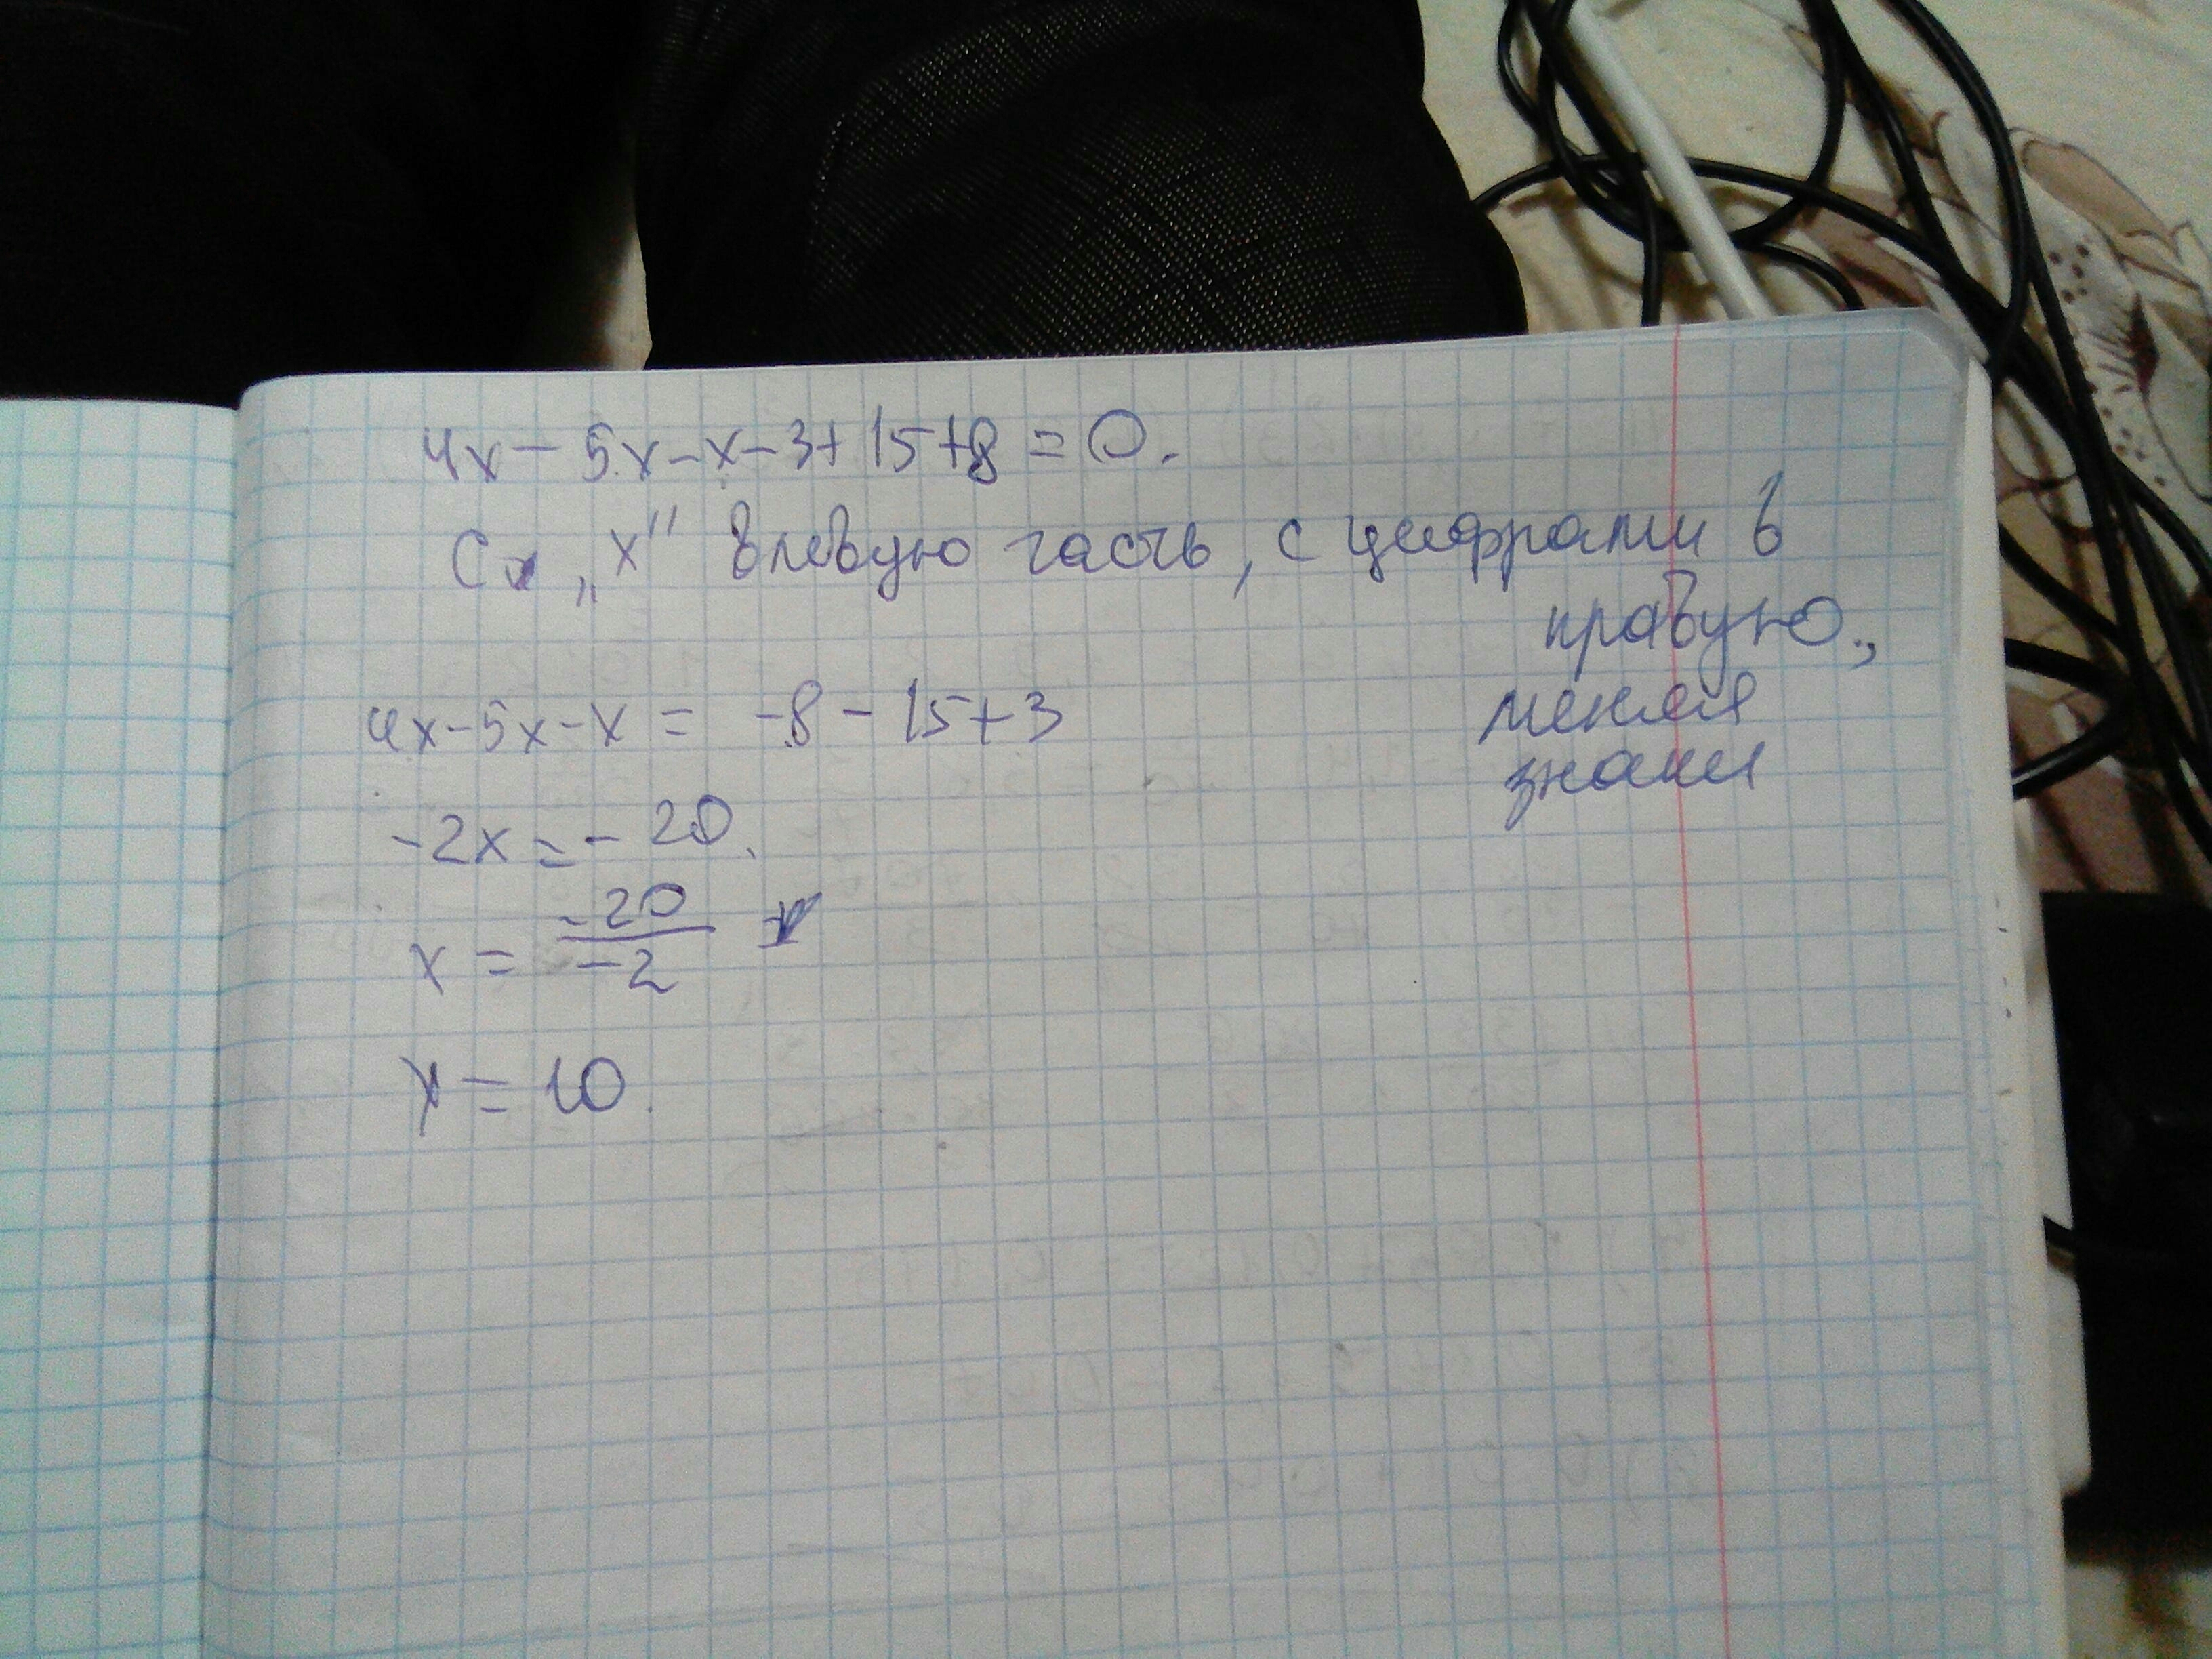 4x - 5x - x - 3 + 15 + 8 = 0.
С „x" в левую часть, с цифрами в
правую.,
меняя
знаки
4x - 5x - x = -8 - 15 + 3
-2x = -20.
x = -20/-2
x = 10.